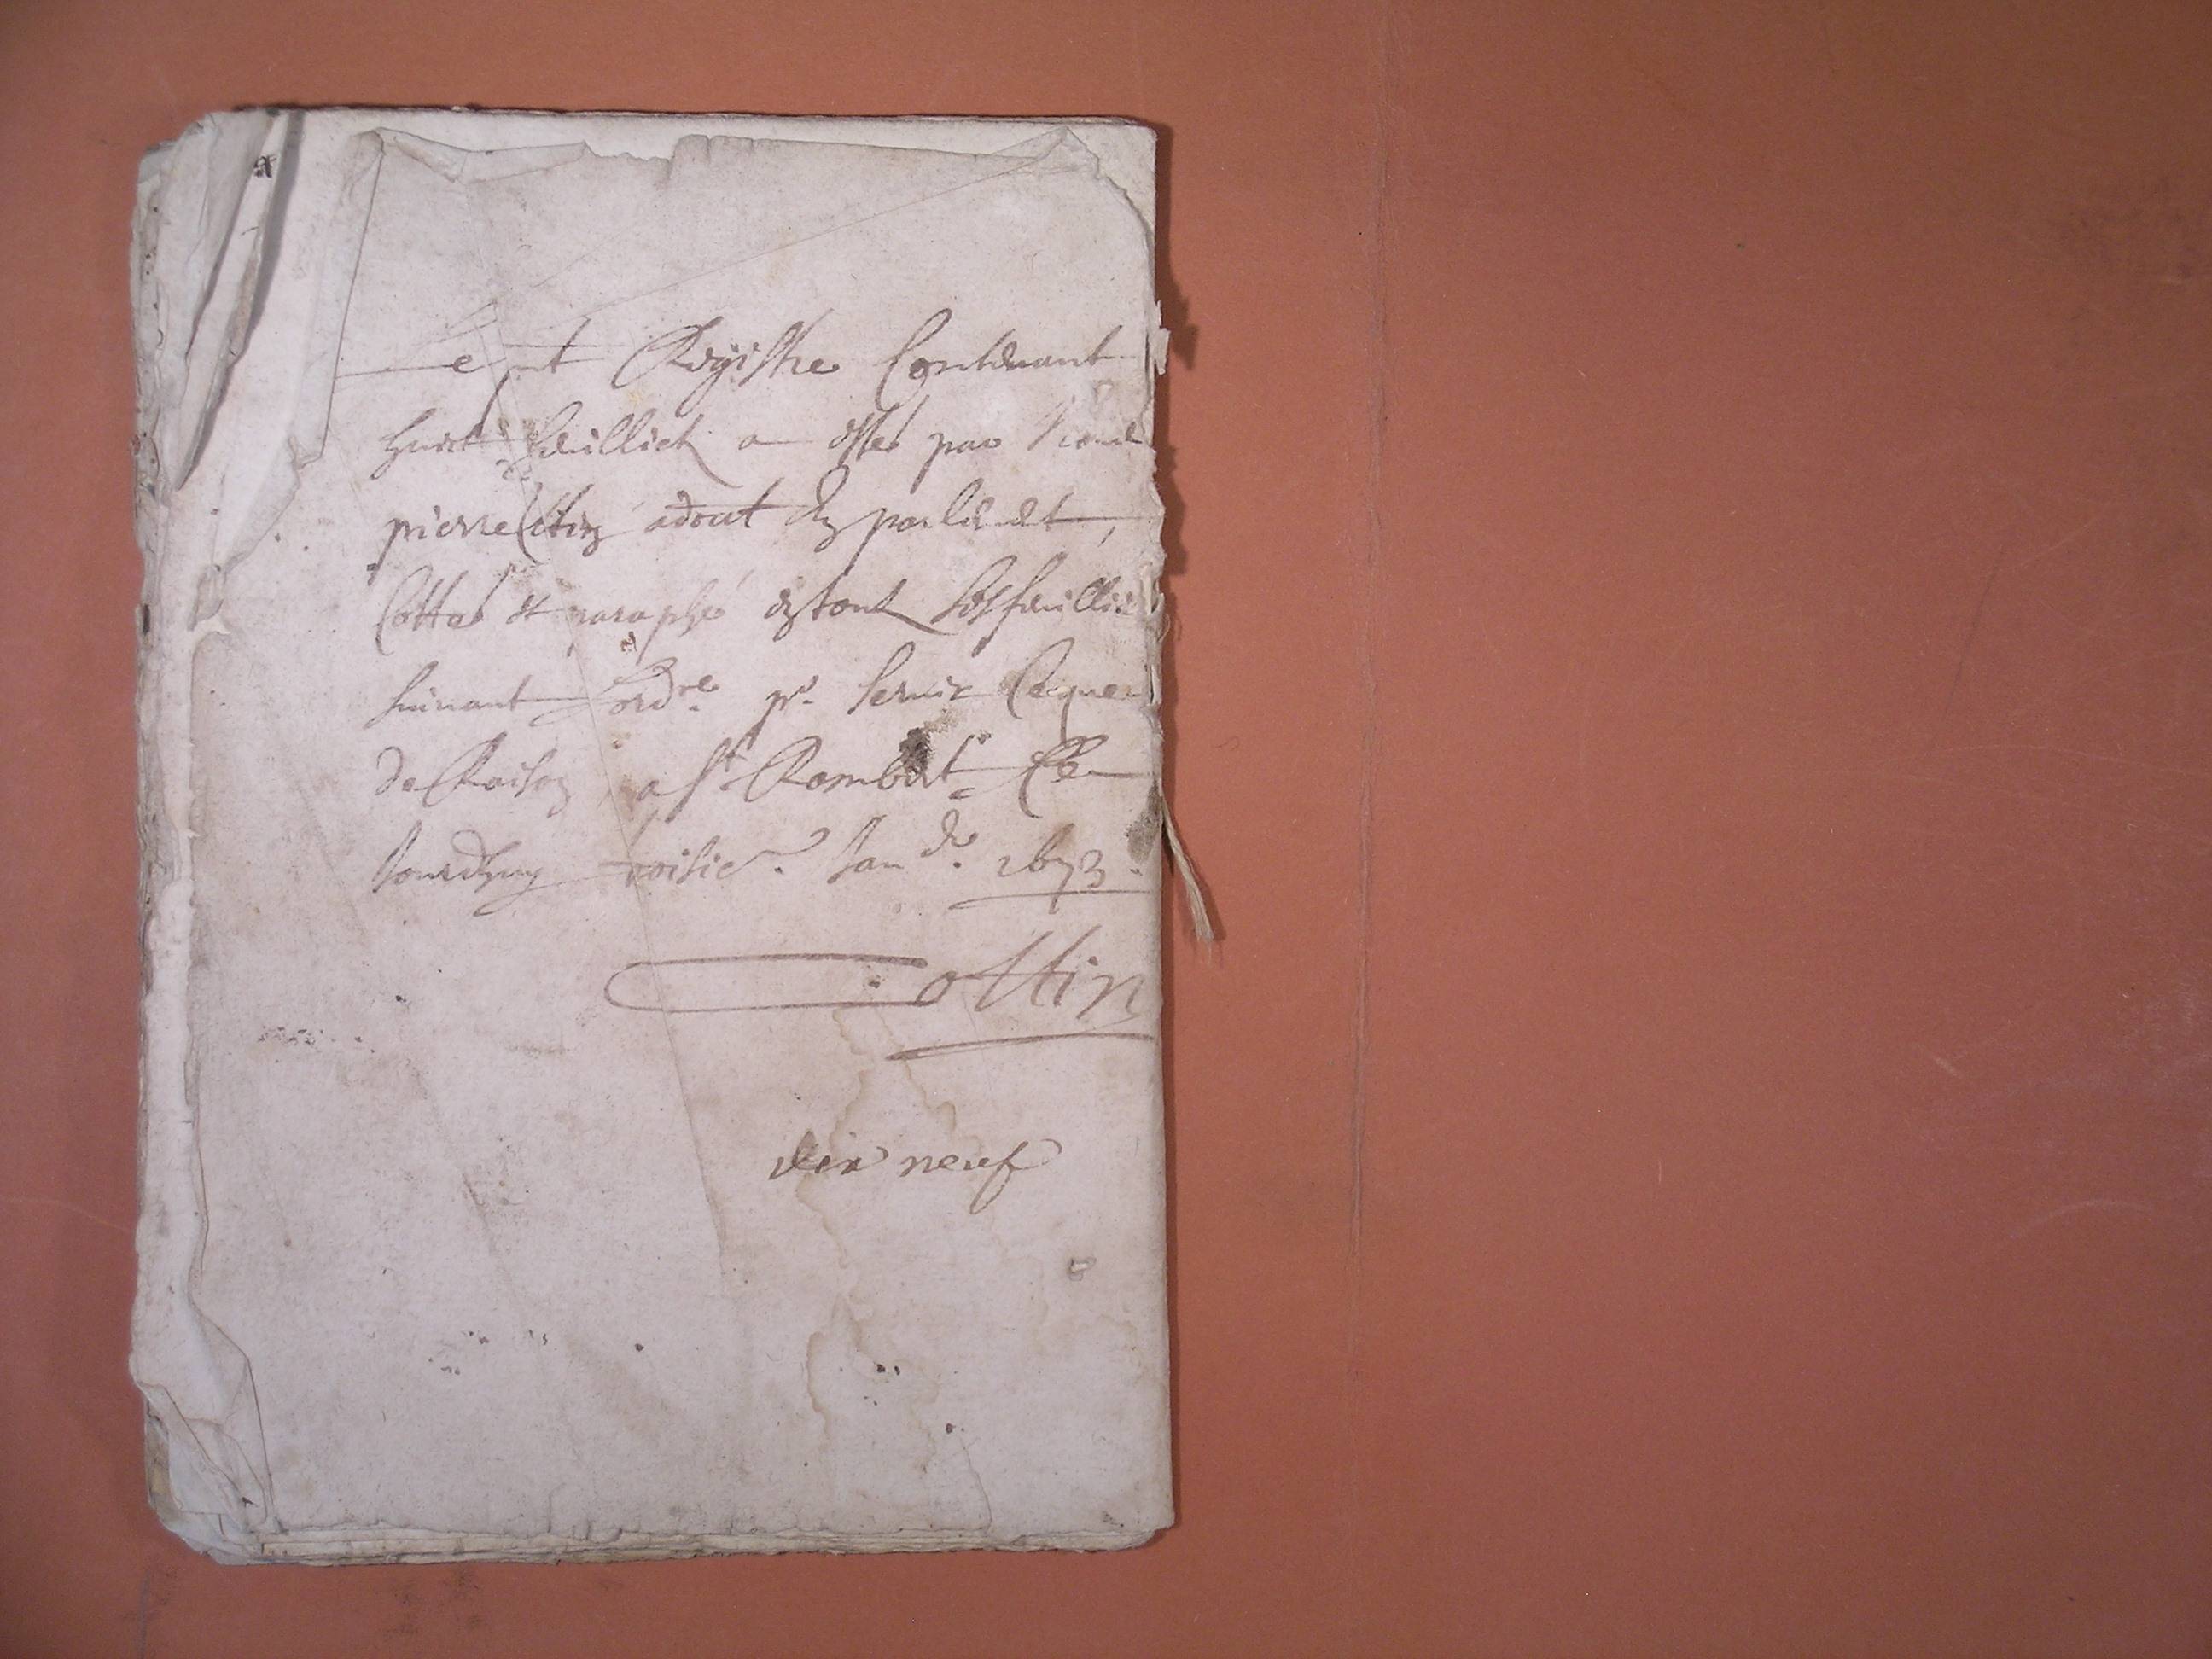 Le pnt Registre Contenant
huict feuilliets a esté par Nous
pierre Cottin advocat en parlement,
Cotté et paraphé en tous les feuillie
suivant l'ordre. pr. servir Ce que
de Raison a St Rambert Ce
Jourdhuy troisie. Jan 1673.
Cottin
dix neuf